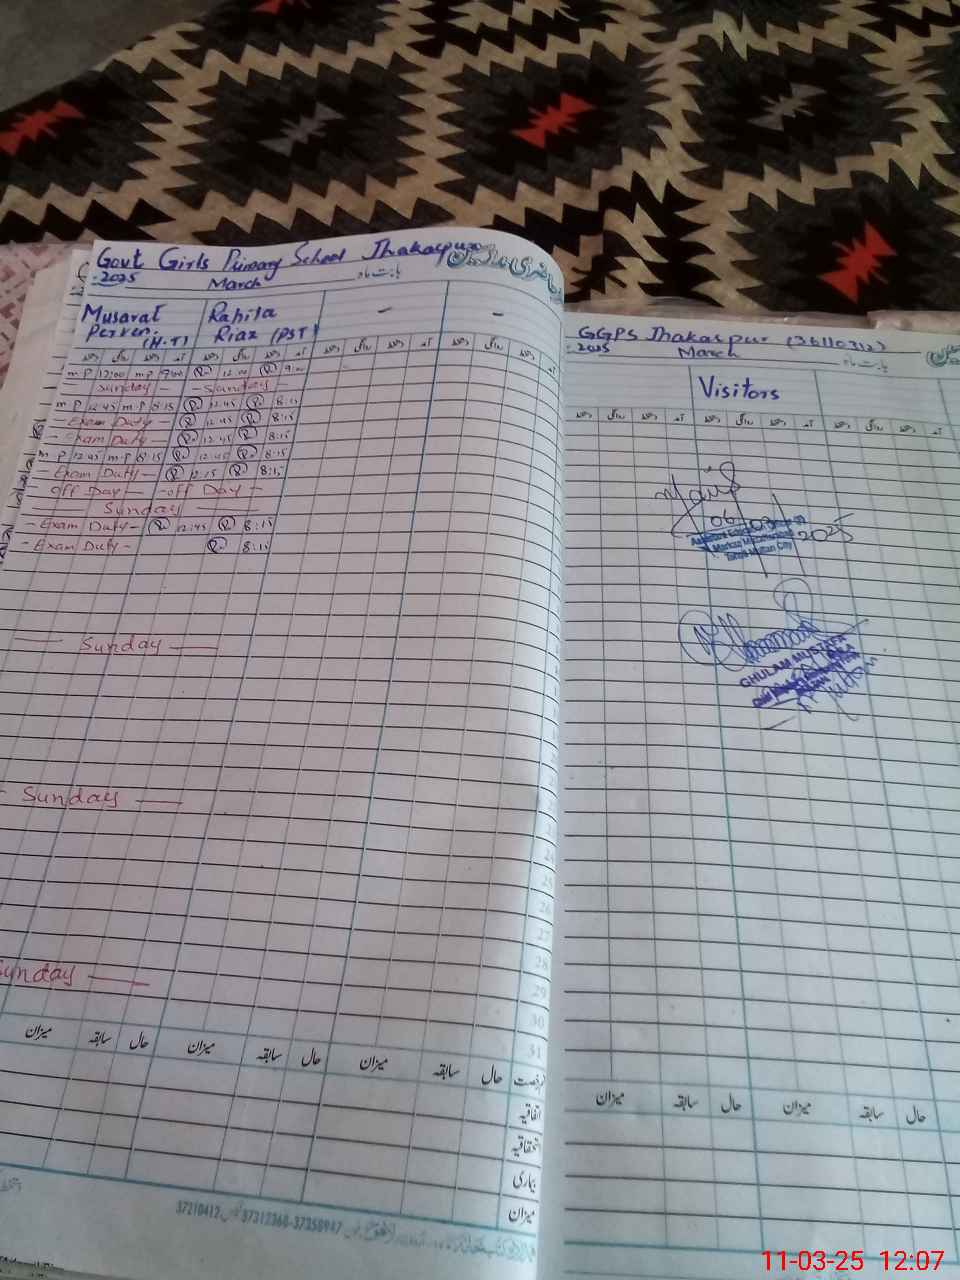 Govt Girls Primary School Jhakarpur
2025 March بابت ماہ
Musarat Rahila - -
Perven. Riaz (PST)
(H.T)
دستخط روانگی دستخط آمد دستخط روانگی دستخط آمد دستخط روانگی دستخط آمد دستخط روانگی دستخط آمد
m p 12:00 m p 9:00 R 12:00 R 9:00
Sunday - - Sunday -
m p 12:45 m p 8:15 R 12:45 R 8:15
- Exam Duty - R 12:45 R 8:15
- Exam Duty - R 12:45 R 8:15
m p 12:45 m p 8:15 R 12:45 R 8:15
- Exam Duty - R 12:15 R 8:15
off Day - - off Day -
Sunday
- Exam Duty - R 12:45 R 8:15
- Exam Duty - R 8:15
Sunday
Sunday
Sunday
24
25
26
27
28
29
30
31
میزان سابقہ حال میزان سابقہ حال میزان سابقہ حال رخصت
اتفاقیہ
استحقاقیہ
بیماری
میزان
37210412 37312360-37350947
GGPS Jhakarpur (36110312)
2025 March بابت ماہ
Visitors
دستخط روانگی دستخط آمد دستخط روانگی دستخط آمد
06 03 2025
Tehsil Multan City
GHULAM MUSTAFA
میزان سابقہ حال میزان سابقہ حال
11-03-25 12:07